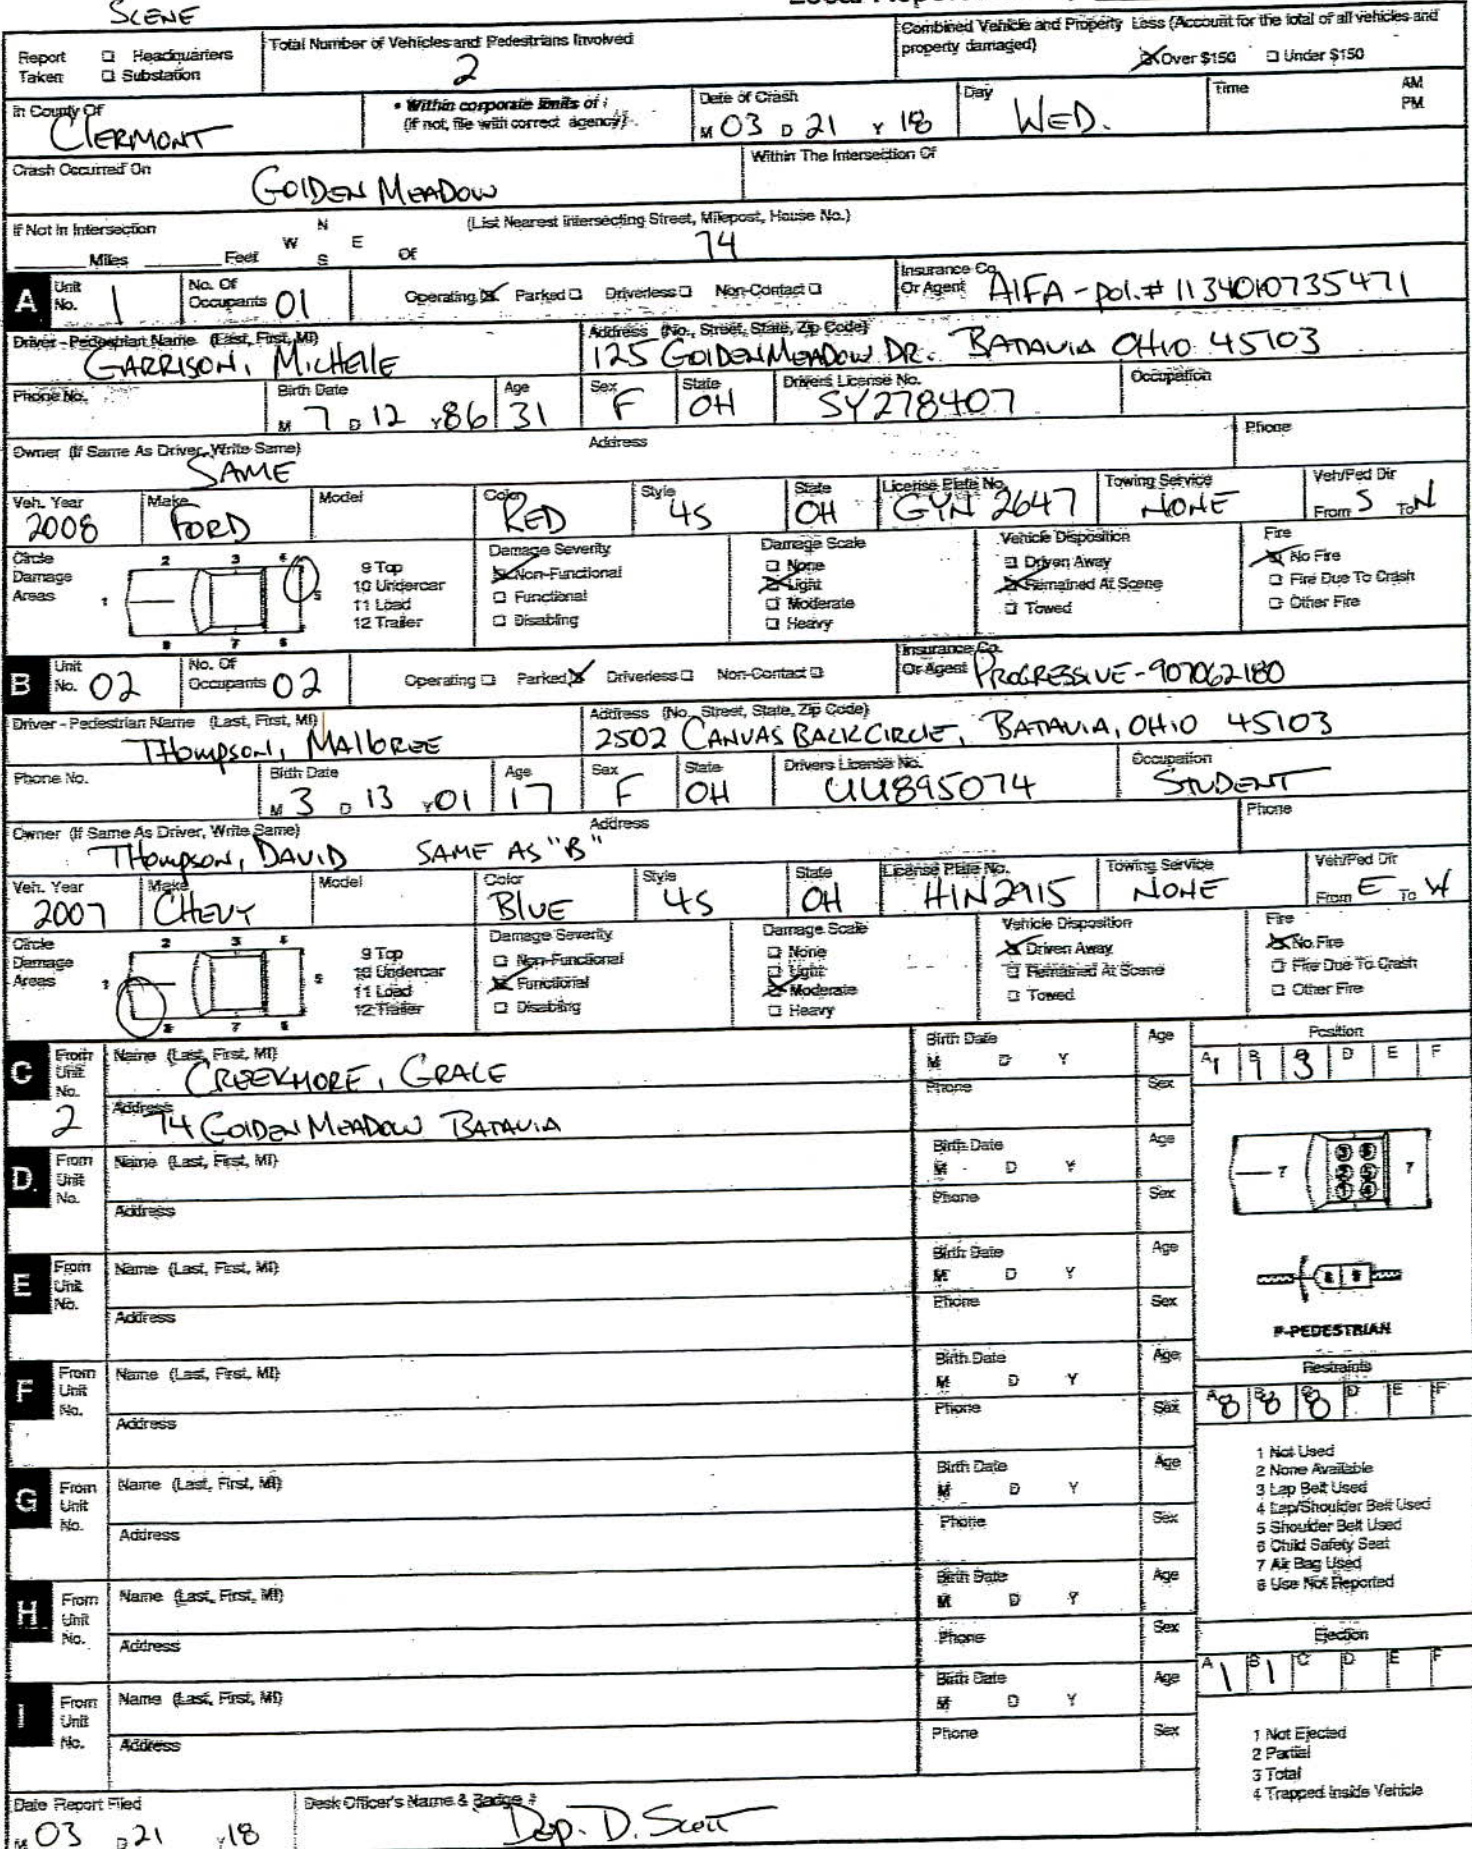 SCENE
Report Taken ☐ Headquarters ☐ Substation
Total Number of Vehicles and Pedestrians Involved
2
Combined Vehicle and Property Loss (Account for the total of all vehicles and property damaged)
☒ Over $150 ☐ Under $150
In County Of
CLERMONT
• Within corporate limits of :
(if not, file with correct agency)
Date of Crash
M 03 D 21 Y 18
Day
WED.
Time AM PM
Crash Occurred On
GOLDEN MEADOW
Within The Intersection Of
If Not In Intersection
Miles Feet N W E S Of
(List Nearest Intersecting Street, Milepost, House No.)
74
A Unit No. 1
No. Of Occupants 01
Operating ☒ Parked ☐ Driverless ☐ Non-Contact ☐
Insurance Co. Or Agent AlFA - pol.# 1134010735471
Driver - Pedestrian Name (Last, First, MI)
GARRISON, MICHELLE
Address (No., Street, State, Zip Code)
125 GOLDEN MEADOW DR. BATAVIA OHIO 45103
Phone No.
Birth Date M 7 D 12 Y 86
Age 31
Sex F
State OH
Drivers License No. SY278407
Occupation
Owner (If Same As Driver, Write Same)
SAME
Address
Phone
Veh. Year 2008
Make FORD
Model
Color RED
Style 4S
State OH
License Plate No. GYN 2647
Towing Service NONE
Veh/Ped Dir From S To N
Circle Damage Areas
1 2 3 4 5 6 7 8
9 Top
10 Undercar
11 Load
12 Trailer
Damage Severity
☒ Non-Functional
☐ Functional
☐ Disabling
Damage Scale
☐ None
☒ Light
☐ Moderate
☐ Heavy
Vehicle Disposition
☐ Driven Away
☒ Remained At Scene
☐ Towed
Fire
☒ No Fire
☐ Fire Due To Crash
☐ Other Fire
B Unit No. 02
No. Of Occupants 02
Operating ☐ Parked ☒ Driverless ☐ Non-Contact ☐
Insurance Co. Or Agent PROGRESSIVE - 907062180
Driver - Pedestrian Name (Last, First, MI)
THOMPSON, MALLOREE
Address (No., Street, State, Zip Code)
2502 CANVAS BACK CIRCLE, BATAVIA, OHIO 45103
Phone No.
Birth Date M 3 D 13 Y 01
Age 17
Sex F
State OH
Drivers License No. UU895074
Occupation STUDENT
Owner (If Same As Driver, Write Same)
THOMPSON, DAVID SAME AS "B"
Address
Phone
Veh. Year 2007
Make CHEVY
Model
Color BLUE
Style 4S
State OH
License Plate No. HIN2915
Towing Service NONE
Veh/Ped Dir From E To W
Circle Damage Areas
1 2 3 4 5 6 7 8
9 Top
10 Undercar
11 Load
12 Trailer
Damage Severity
☐ Non-Functional
☒ Functional
☐ Disabling
Damage Scale
☐ None
☐ Light
☒ Moderate
☐ Heavy
Vehicle Disposition
☒ Driven Away
☐ Remained At Scene
☐ Towed
Fire
☒ No Fire
☐ Fire Due To Crash
☐ Other Fire
C From Unit No. 2
Name (Last, First, MI)
CREEKMORE, GRACE
Address
74 GOLDEN MEADOW BATAVIA
Birth Date M D Y Age
Phone Sex
Position
A 1 B 1 3 D E F
D. From Unit No.
Name (Last, First, MI)
Address
Birth Date M D Y Age
Phone Sex
7 7
E From Unit No.
Name (Last, First, MI)
Address
Birth Date M D Y Age
Phone Sex
P-PEDESTRIAN
F From Unit No.
Name (Last, First, MI)
Address
Birth Date M D Y Age
Phone Sex
Restraints
A 8 B 8 8 D E F
G From Unit No.
Name (Last, First, MI)
Address
Birth Date M D Y Age
Phone Sex
1 Not Used
2 None Available
3 Lap Belt Used
4 Lap/Shoulder Belt Used
5 Shoulder Belt Used
6 Child Safety Seat
7 Air Bag Used
8 Use Not Reported
H From Unit No.
Name (Last, First, MI)
Address
Birth Date M D Y Age
Phone Sex
Ejection
A 1 B 1 C D E F
I From Unit No.
Name (Last, First, MI)
Address
Birth Date M D Y Age
Phone Sex
1 Not Ejected
2 Partial
3 Total
4 Trapped Inside Vehicle
Date Report Filed
M 03 D 21 Y 18
Desk Officer's Name & Badge #
Dep. D. Scott